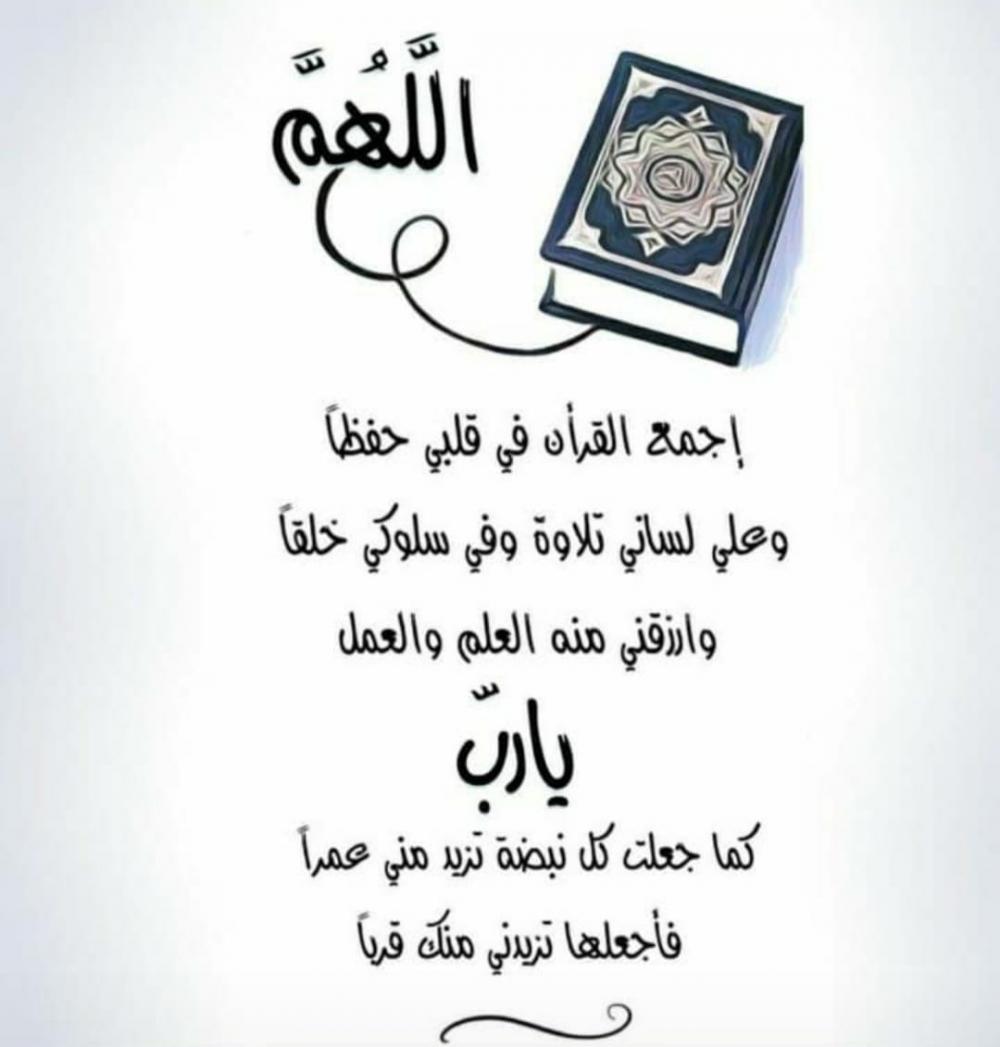 اللَّهُمَّ
إجمع القرأن في قلبي حفظاً
وعلي لساني تلاوة وفي سلوكي خلقاً
وارزقني منه العلم والعمل
ياربّ
كما جعلت كل نبضة تزيد مني عمراً
فأجعلها تزيدني منك قرباً